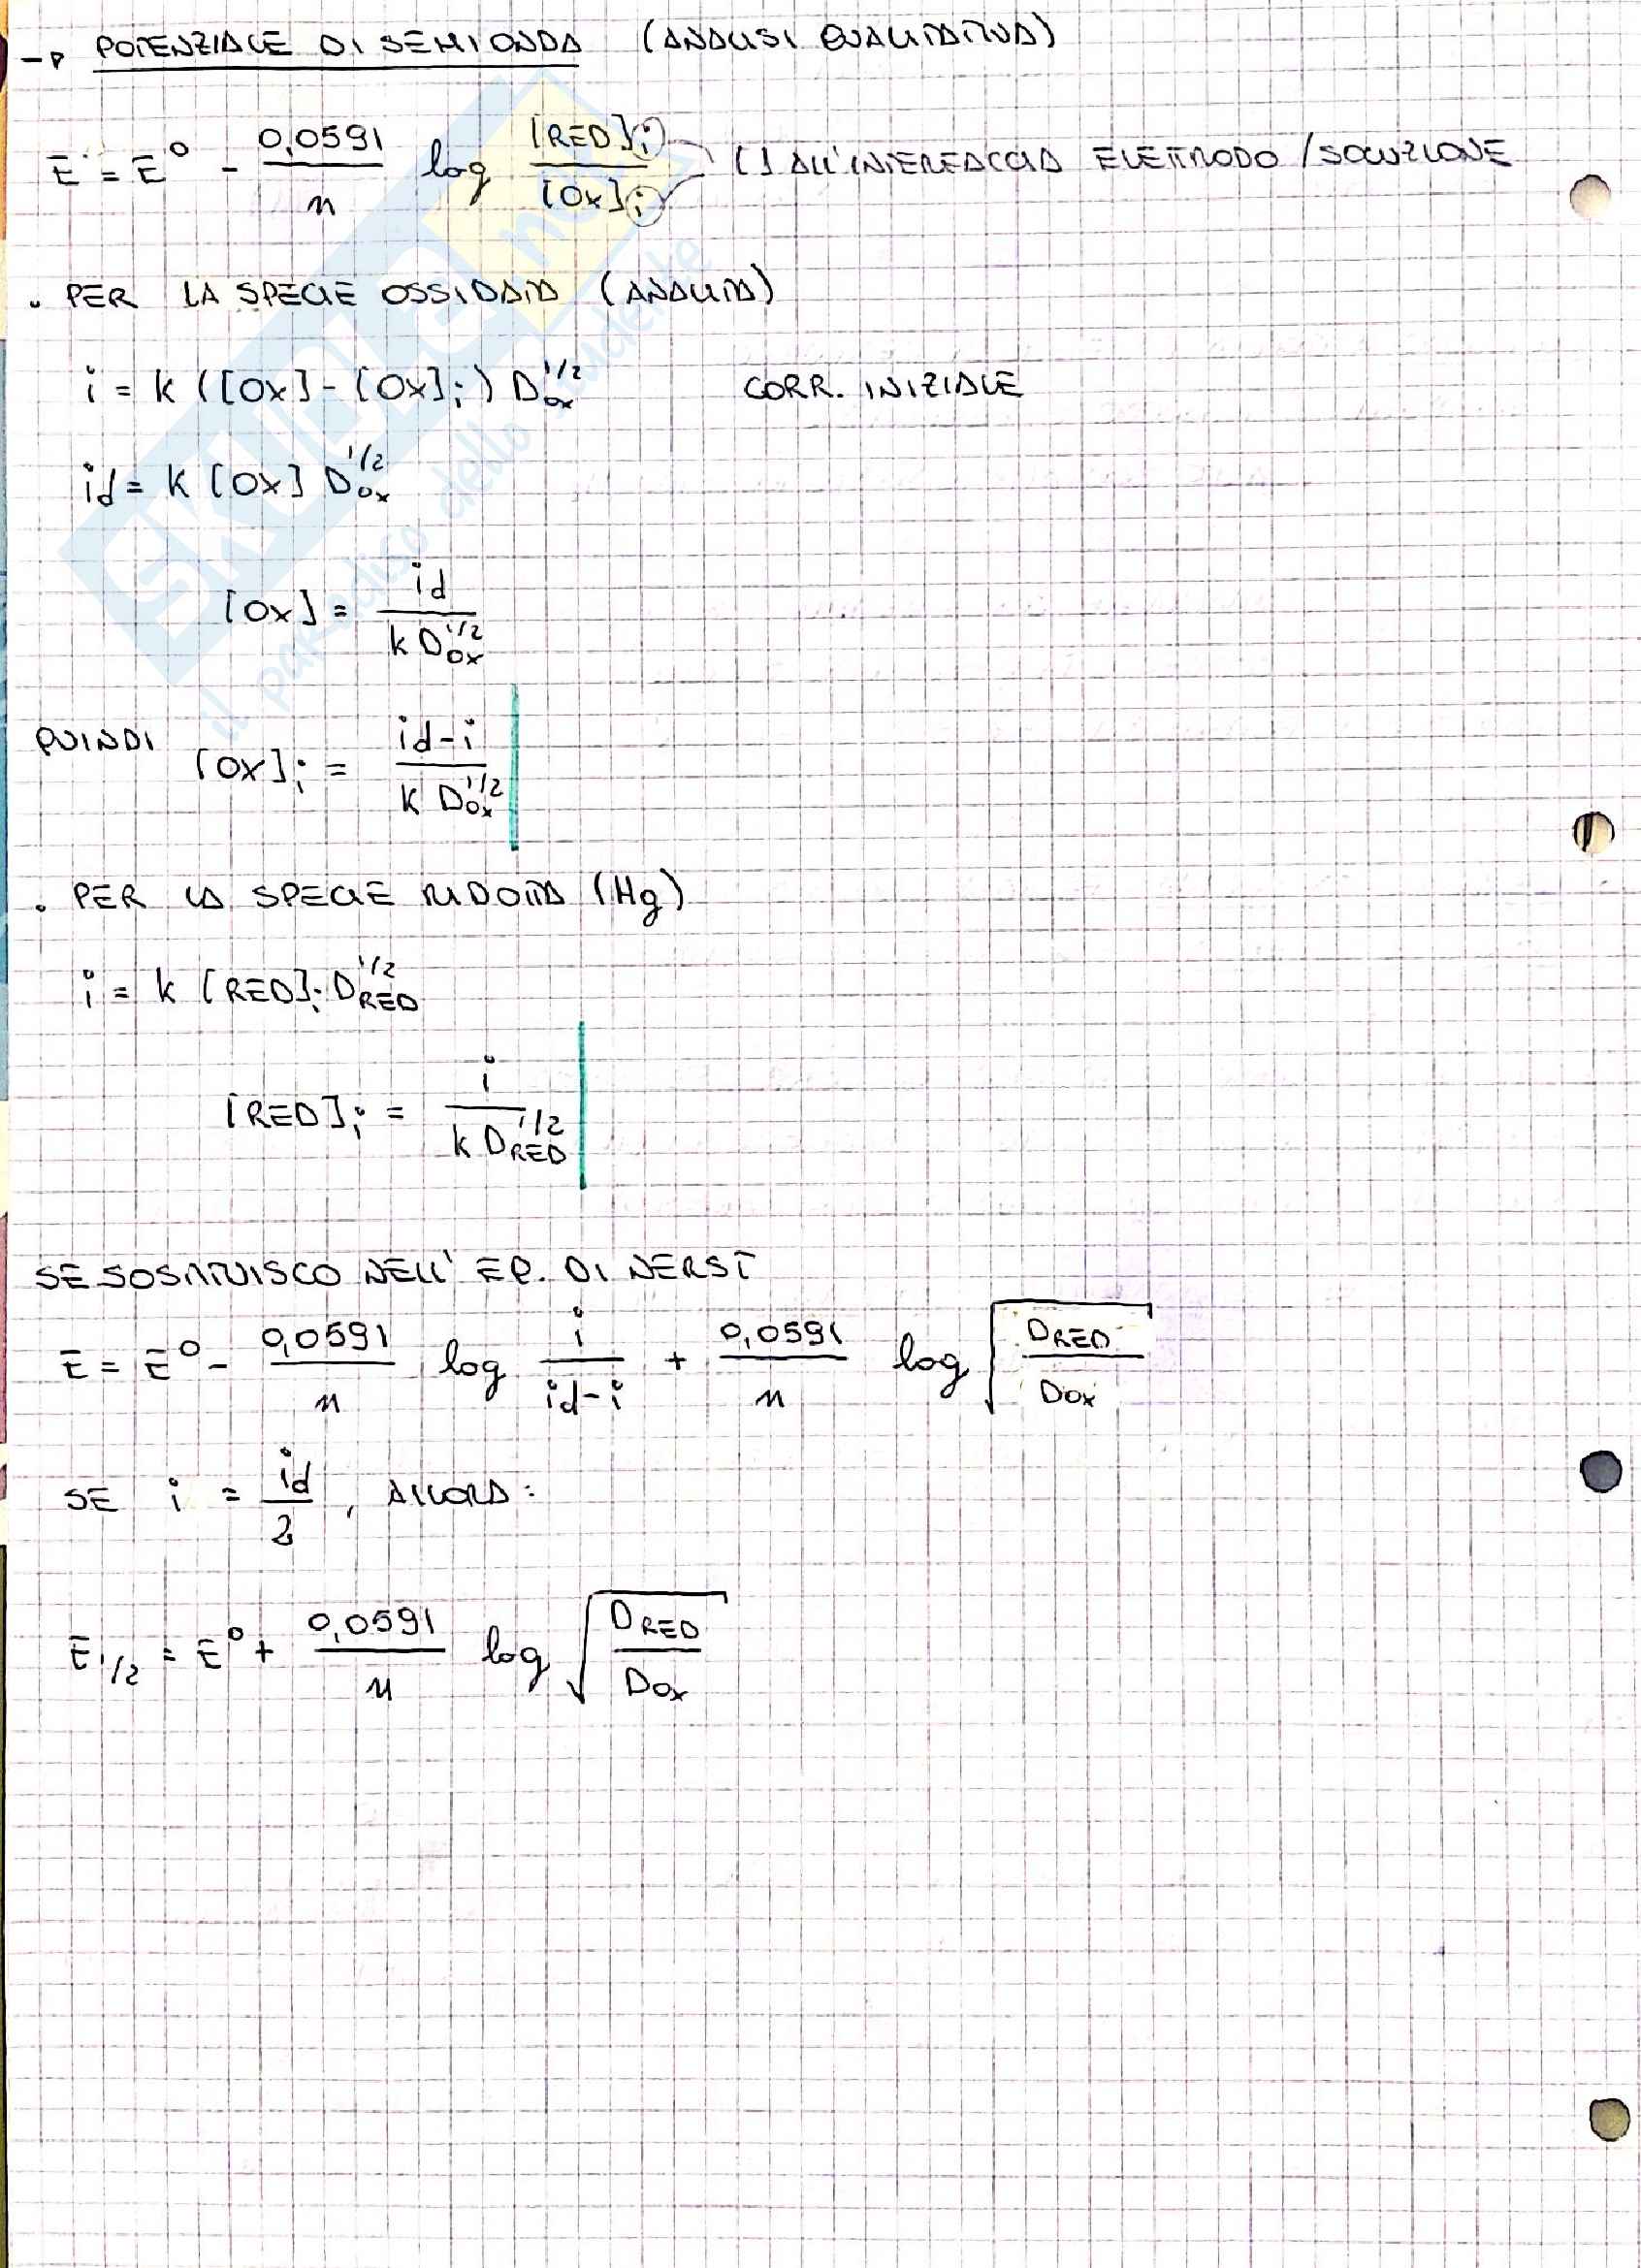 → POTENZIALE DI SEMIONDA (ANALISI QUALITATIVA)
E = E° - 0,0591/n log [RED]i/[Ox]i [] ALL'INTERFACCIA ELETTRODO/SOLUZIONE
. PER LA SPECIE OSSIDATA (ANALITA)
i = k ([Ox] - [Ox]i) Dox^1/2 CORR. INIZIALE
id = k [Ox] Dox^1/2
[Ox] = id / k Dox^1/2
QUINDI [Ox]i = id-i / k Dox^1/2
. PER LA SPECIE RIDOTTA (Hg)
i = k [RED]i DRED^1/2
[RED]i = i / k DRED^1/2
SE SOSTITUISCO NELL'EQ. DI NERST
E = E° - 0,0591/n log i/id-i + 0,0591/n log √DRED/Dox
SE i = id/2, ALLORA:
E1/2 = E° + 0,0591/n log √DRED/Dox
SKUOLA.net
il paradiso dello studente